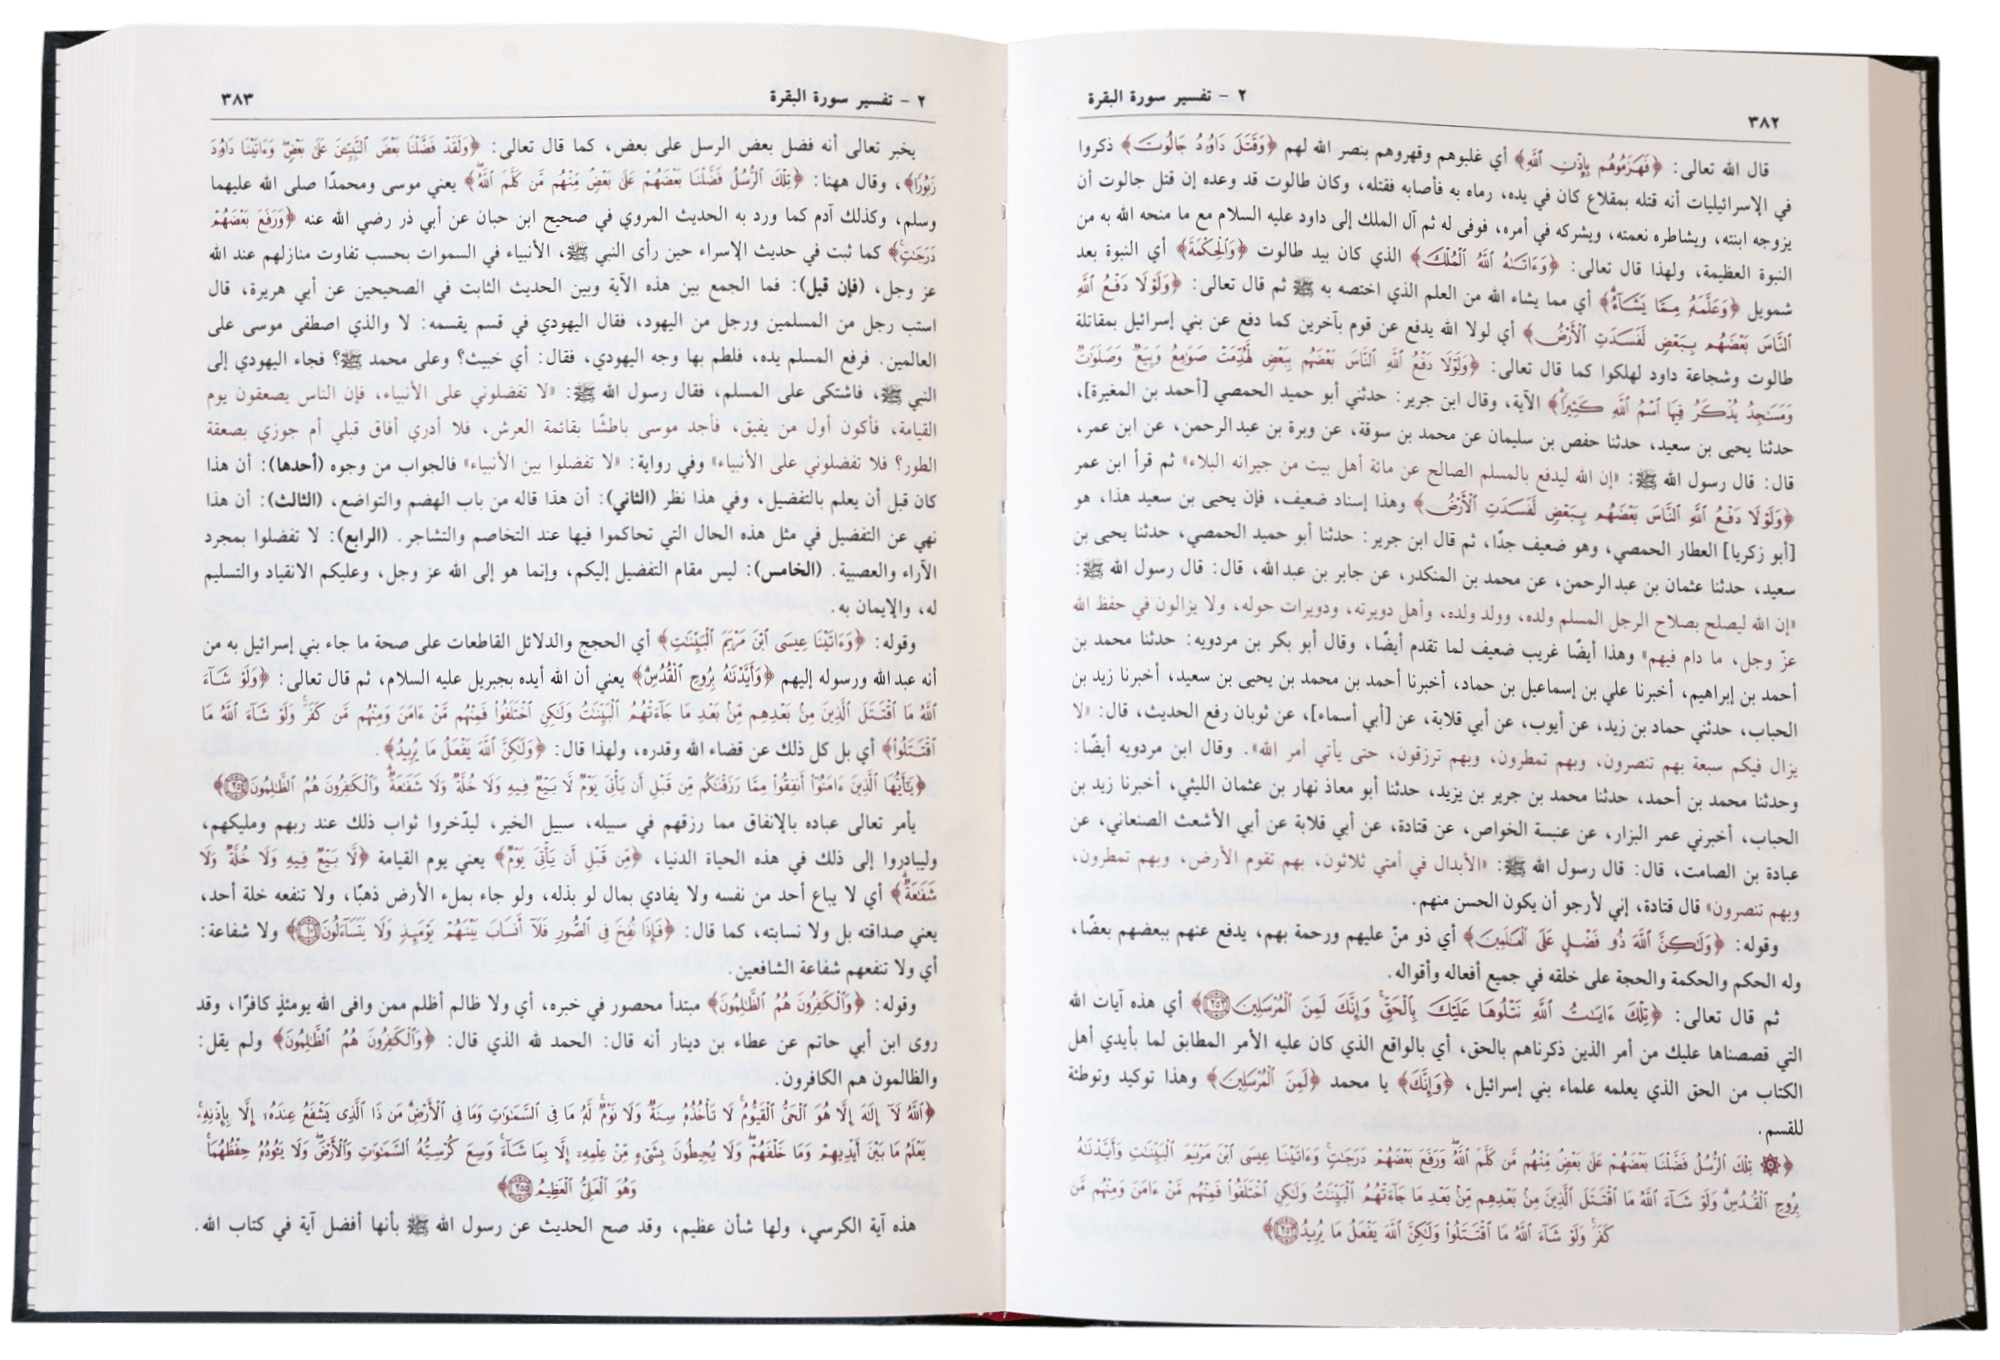 ٢ - تفسير سورة البقرة
٣٨٢
قال الله تعالى: ﴿فَهَزَمُوهُم بِإِذْنِ اللَّهِ﴾ أي غلبوهم وقهروهم بنصر الله لهم ﴿وَقَتَلَ دَاوُدُ جَالُوتَ﴾ ذكروا
في الإسرائيليات أنه قتله بمقلاع كان في يده، رماه به فأصابه فقتله، وكان طالوت قد وعده إن قتل جالوت أن
يزوجه ابنته، ويشاطره نعمته، ويشركه في أمره، فوفى له ثم آل الملك إلى داود عليه السلام مع ما منحه الله به من
النبوة العظيمة، ولهذا قال تعالى: ﴿وَءَاتَىٰهُ اللَّهُ الْمُلْكَ﴾ الذي كان بيد طالوت ﴿وَالْحِكْمَةَ﴾ أي النبوة بعد
شمويل ﴿وَعَلَّمَهُ مِمَّا يَشَاءُ﴾ أي مما يشاء الله من العلم الذي اختصه به ﷺ ثم قال تعالى: ﴿وَلَوْلَا دَفْعُ اللَّهِ
النَّاسَ بَعْضَهُم بِبَعْضٍ لَّفَسَدَتِ الْأَرْضُ﴾ أي لولا الله يدفع عن قوم بآخرين كما دفع عن بني إسرائيل بمقاتلة
طالوت وشجاعة داود لهلكوا كما قال تعالى: ﴿وَلَوْلَا دَفْعُ اللَّهِ النَّاسَ بَعْضَهُم بِبَعْضٍ لَّهُدِّمَتْ صَوَامِعُ وَبِيَعٌ وَصَلَوَاتٌ
وَمَسَاجِدُ يُذْكَرُ فِيهَا اسْمُ اللَّهِ كَثِيرًا﴾ الآية، وقال ابن جرير: حدثني أبو حميد الحمصي [أحمد بن المغيرة]،
حدثنا يحيى بن سعيد، حدثنا حفص بن سليمان عن محمد بن سوقة، عن وبرة بن عبد الرحمن، عن ابن عمر،
قال: قال رسول الله ﷺ: «إن الله ليدفع بالمسلم الصالح عن مائة أهل بيت من جيرانه البلاء» ثم قرأ ابن عمر
﴿وَلَوْلَا دَفْعُ اللَّهِ النَّاسَ بَعْضَهُم بِبَعْضٍ لَّفَسَدَتِ الْأَرْضُ﴾ وهذا إسناد ضعيف، فإن يحيى بن سعيد هذا، هو
[أبو زكريا] العطار الحمصي، وهو ضعيف جدًا، ثم قال ابن جرير: حدثنا أبو حميد الحمصي، حدثنا يحيى بن
سعيد، حدثنا عثمان بن عبد الرحمن، عن محمد بن المنكدر، عن جابر بن عبد الله، قال: قال رسول الله ﷺ:
«إن الله ليصلح بصلاح الرجل المسلم ولده، وولد ولده، وأهل دويرته، ودويرات حوله، ولا يزالون في حفظ الله
عزّ وجل، ما دام فيهم» وهذا أيضًا غريب ضعيف لما تقدم أيضًا، وقال أبو بكر بن مردويه: حدثنا محمد بن
أحمد بن إبراهيم، أخبرنا علي بن إسماعيل بن حماد، أخبرنا أحمد بن محمد بن يحيى بن سعيد، أخبرنا زيد بن
الحباب، حدثني حماد بن زيد، عن أيوب، عن أبي قلابة، عن [أبي أسماء]، عن ثوبان رفع الحديث، قال: «لا
يزال فيكم سبعة بهم تنصرون، وبهم تمطرون، وبهم ترزقون، حتى يأتي أمر الله». وقال ابن مردويه أيضًا:
وحدثنا محمد بن أحمد، حدثنا محمد بن جرير بن يزيد، حدثنا أبو معاذ نهار بن عثمان الليثي، أخبرنا زيد بن
الحباب، أخبرني عمر البزار، عن عنبسة الخواص، عن قتادة، عن أبي قلابة عن أبي الأشعث الصنعاني، عن
عبادة بن الصامت، قال: قال رسول الله ﷺ: «الأبدال في أمتي ثلاثون، بهم تقوم الأرض، وبهم تمطرون،
وبهم تنصرون» قال قتادة، إني لأرجو أن يكون الحسن منهم.
وقوله: ﴿وَلَٰكِنَّ اللَّهَ ذُو فَضْلٍ عَلَى الْعَالَمِينَ﴾ أي ذو منّ عليهم ورحمة بهم، يدفع عنهم ببعضهم بعضًا،
وله الحكم والحكمة والحجة على خلقه في جميع أفعاله وأقواله.
ثم قال تعالى: ﴿تِلْكَ ءَايَاتُ اللَّهِ نَتْلُوهَا عَلَيْكَ بِالْحَقِّ وَإِنَّكَ لَمِنَ الْمُرْسَلِينَ ٢٥٢﴾ أي هذه آيات الله
التي قصصناها عليك من أمر الذين ذكرناهم بالحق، أي بالواقع الذي كان عليه الأمر المطابق لما بأيدي أهل
الكتاب من الحق الذي يعلمه علماء بني إسرائيل، ﴿وَإِنَّكَ﴾ يا محمد ﴿لَمِنَ الْمُرْسَلِينَ﴾ وهذا توكيد وتوطئة
للقسم.
﴿۞ تِلْكَ الرُّسُلُ فَضَّلْنَا بَعْضَهُمْ عَلَىٰ بَعْضٍ مِّنْهُم مَّن كَلَّمَ اللَّهُ وَرَفَعَ بَعْضَهُمْ دَرَجَاتٍ وَءَاتَيْنَا عِيسَى ابْنَ مَرْيَمَ الْبَيِّنَاتِ وَأَيَّدْنَاهُ
بِرُوحِ الْقُدُسِ وَلَوْ شَاءَ اللَّهُ مَا اقْتَتَلَ الَّذِينَ مِنْ بَعْدِهِم مِّنْ بَعْدِ مَا جَاءَتْهُمُ الْبَيِّنَاتُ وَلَٰكِنِ اخْتَلَفُوا فَمِنْهُم مَّنْ ءَامَنَ وَمِنْهُم مَّن
كَفَرَ وَلَوْ شَاءَ اللَّهُ مَا اقْتَتَلُوا وَلَٰكِنَّ اللَّهَ يَفْعَلُ مَا يُرِيدُ ٢٥٣﴾
٢ - تفسير سورة البقرة
٣٨٣
يخبر تعالى أنه فضل بعض الرسل على بعض، كما قال تعالى: ﴿وَلَقَدْ فَضَّلْنَا بَعْضَ النَّبِيِّينَ عَلَىٰ بَعْضٍ وَءَاتَيْنَا دَاوُدَ
زَبُورًا﴾، وقال ههنا: ﴿تِلْكَ الرُّسُلُ فَضَّلْنَا بَعْضَهُمْ عَلَىٰ بَعْضٍ مِّنْهُم مَّن كَلَّمَ اللَّهُ﴾ يعني موسى ومحمدًا صلى الله عليهما
وسلم، وكذلك آدم كما ورد به الحديث المروي في صحيح ابن حبان عن أبي ذر رضي الله عنه ﴿وَرَفَعَ بَعْضَهُمْ
دَرَجَاتٍ﴾ كما ثبت في حديث الإسراء حين رأى النبي ﷺ، الأنبياء في السموات بحسب تفاوت منازلهم عند الله
عز وجل، (فإن قيل): فما الجمع بين هذه الآية وبين الحديث الثابت في الصحيحين عن أبي هريرة، قال
استب رجل من المسلمين ورجل من اليهود، فقال اليهودي في قسم يقسمه: لا والذي اصطفى موسى على
العالمين. فرفع المسلم يده، فلطم بها وجه اليهودي، فقال: أي خبيث؟ وعلى محمد ﷺ؟ فجاء اليهودي إلى
النبي ﷺ، فاشتكى على المسلم، فقال رسول الله ﷺ: «لا تفضلوني على الأنبياء، فإن الناس يصعقون يوم
القيامة، فأكون أول من يفيق، فأجد موسى باطشًا بقائمة العرش، فلا أدري أفاق قبلي أم جوزي بصعقة
الطور؟ فلا تفضلوني على الأنبياء» وفي رواية: «لا تفضلوا بين الأنبياء» فالجواب من وجوه (أحدها): أن هذا
كان قبل أن يعلم بالتفضيل، وفي هذا نظر (الثاني): أن هذا قاله من باب الهضم والتواضع، (الثالث): أن هذا
نهي عن التفضيل في مثل هذه الحال التي تحاكموا فيها عند التخاصم والتشاجر. (الرابع): لا تفضلوا بمجرد
الآراء والعصبية. (الخامس): ليس مقام التفضيل إليكم، وإنما هو إلى الله عز وجل، وعليكم الانقياد والتسليم
له، والإيمان به.
وقوله: ﴿وَءَاتَيْنَا عِيسَى ابْنَ مَرْيَمَ الْبَيِّنَاتِ﴾ أي الحجج والدلائل القاطعات على صحة ما جاء بني إسرائيل به من
أنه عبد الله ورسوله إليهم ﴿وَأَيَّدْنَاهُ بِرُوحِ الْقُدُسِ﴾ يعني أن الله أيده بجبريل عليه السلام، ثم قال تعالى: ﴿وَلَوْ شَاءَ
اللَّهُ مَا اقْتَتَلَ الَّذِينَ مِنْ بَعْدِهِم مِّنْ بَعْدِ مَا جَاءَتْهُمُ الْبَيِّنَاتُ وَلَٰكِنِ اخْتَلَفُوا فَمِنْهُم مَّنْ ءَامَنَ وَمِنْهُم مَّن كَفَرَ وَلَوْ شَاءَ اللَّهُ مَا
اقْتَتَلُوا﴾ أي بل كل ذلك عن قضاء الله وقدره، ولهذا قال: ﴿وَلَٰكِنَّ اللَّهَ يَفْعَلُ مَا يُرِيدُ﴾.
﴿يَا أَيُّهَا الَّذِينَ ءَامَنُوا أَنفِقُوا مِمَّا رَزَقْنَاكُم مِّن قَبْلِ أَن يَأْتِيَ يَوْمٌ لَّا بَيْعٌ فِيهِ وَلَا خُلَّةٌ وَلَا شَفَاعَةٌ وَالْكَافِرُونَ هُمُ الظَّالِمُونَ ٢٥٤﴾
يأمر تعالى عباده بالإنفاق مما رزقهم في سبيله، سبيل الخير، ليدّخروا ثواب ذلك عند ربهم ومليكهم،
وليبادروا إلى ذلك في هذه الحياة الدنيا، ﴿مِّن قَبْلِ أَن يَأْتِيَ يَوْمٌ﴾ يعني يوم القيامة ﴿لَّا بَيْعٌ فِيهِ وَلَا خُلَّةٌ وَلَا
شَفَاعَةٌ﴾ أي لا يباع أحد من نفسه ولا يفادي بمال لو بذله، ولو جاء بملء الأرض ذهبًا، ولا تنفعه خلة أحد،
يعني صداقته بل ولا نسابته، كما قال: ﴿فَإِذَا نُفِخَ فِي الصُّورِ فَلَا أَنسَابَ بَيْنَهُمْ يَوْمَئِذٍ وَلَا يَتَسَاءَلُونَ ١٠١﴾ ولا شفاعة:
أي ولا تنفعهم شفاعة الشافعين.
وقوله: ﴿وَالْكَافِرُونَ هُمُ الظَّالِمُونَ﴾ مبتدأ محصور في خبره، أي ولا ظالم أظلم ممن وافى الله يومئذٍ كافرًا، وقد
روى ابن أبي حاتم عن عطاء بن دينار أنه قال: الحمد لله الذي قال: ﴿وَالْكَافِرُونَ هُمُ الظَّالِمُونَ﴾ ولم يقل:
والظالمون هم الكافرون.
﴿اللَّهُ لَا إِلَٰهَ إِلَّا هُوَ الْحَيُّ الْقَيُّومُ لَا تَأْخُذُهُ سِنَةٌ وَلَا نَوْمٌ لَّهُ مَا فِي السَّمَاوَاتِ وَمَا فِي الْأَرْضِ مَن ذَا الَّذِي يَشْفَعُ عِندَهُ إِلَّا بِإِذْنِهِ
يَعْلَمُ مَا بَيْنَ أَيْدِيهِمْ وَمَا خَلْفَهُمْ وَلَا يُحِيطُونَ بِشَيْءٍ مِّنْ عِلْمِهِ إِلَّا بِمَا شَاءَ وَسِعَ كُرْسِيُّهُ السَّمَاوَاتِ وَالْأَرْضَ وَلَا يَئُودُهُ حِفْظُهُمَا
وَهُوَ الْعَلِيُّ الْعَظِيمُ ٢٥٥﴾
هذه آية الكرسي، ولها شأن عظيم، وقد صح الحديث عن رسول الله ﷺ بأنها أفضل آية في كتاب الله.